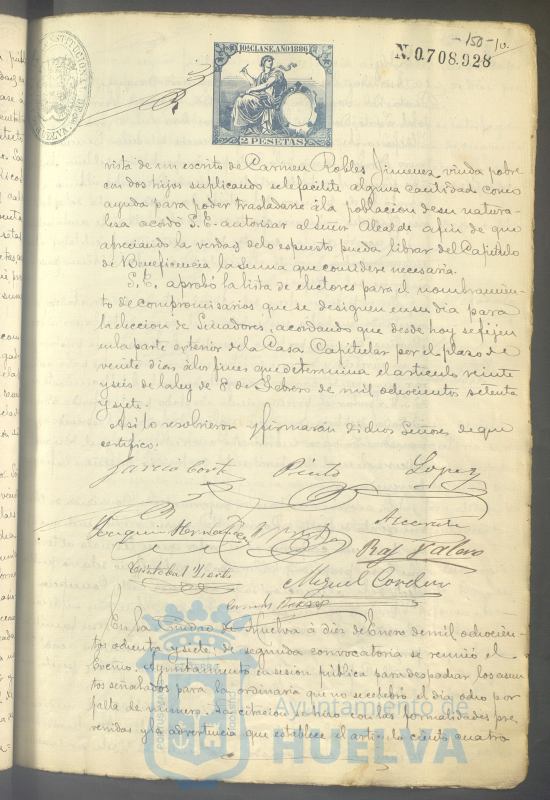 -150- 10.
N. 0.708.928
10ª CLASE. AÑO 1886
2 PESETAS
vista de un escrito de Carmen Robles Jimenez, viuda pobre
con dos hijos suplicando sele facilite alguna cantidad como
ayuda para poder trasladarse ála poblacion de su natura-
leza acordó S.E. autorizar al Señor Alcalde afin de que
apreciando la verdad delo espuesto pueda librar del Capitulo
de Beneficencia la suma que considere necesaria.
S.E. aprobó la lista de electores para el nombramien-
to de compromisarios que se designen en su dia para
la eleccion de Senadores, acordando que desde hoy se fijen
en la parte exterior dela Casa Capitular por el plazo de
veinte dias álos fines que determina el articulo veinte
y seis de la ley de 8 de Febrero de mil ochocientos setenta
y siete.
Asi lo resolvieron y firmarán dichos Señores de que
certifico.
Garcia Cort Pinto Lopez
Joaquin Hernandez
Raf Valero
Cristobal
Miguel Cordero
En la Ciudad de Huelva á diez de Enero de mil ochocien-
tos ochenta y siete, de segunda convocatoria se reunió el
Excmo. Ayuntamiento en sesion pública para despachar los asun-
tos señalados para la ordinaria que no se celebró el dia ocho por
falta de número. La citacion se hizo con las formalidades pre-
venidas y la advertencia que establece el art.º ciento cuatro
Ayuntamiento de
HUELVA